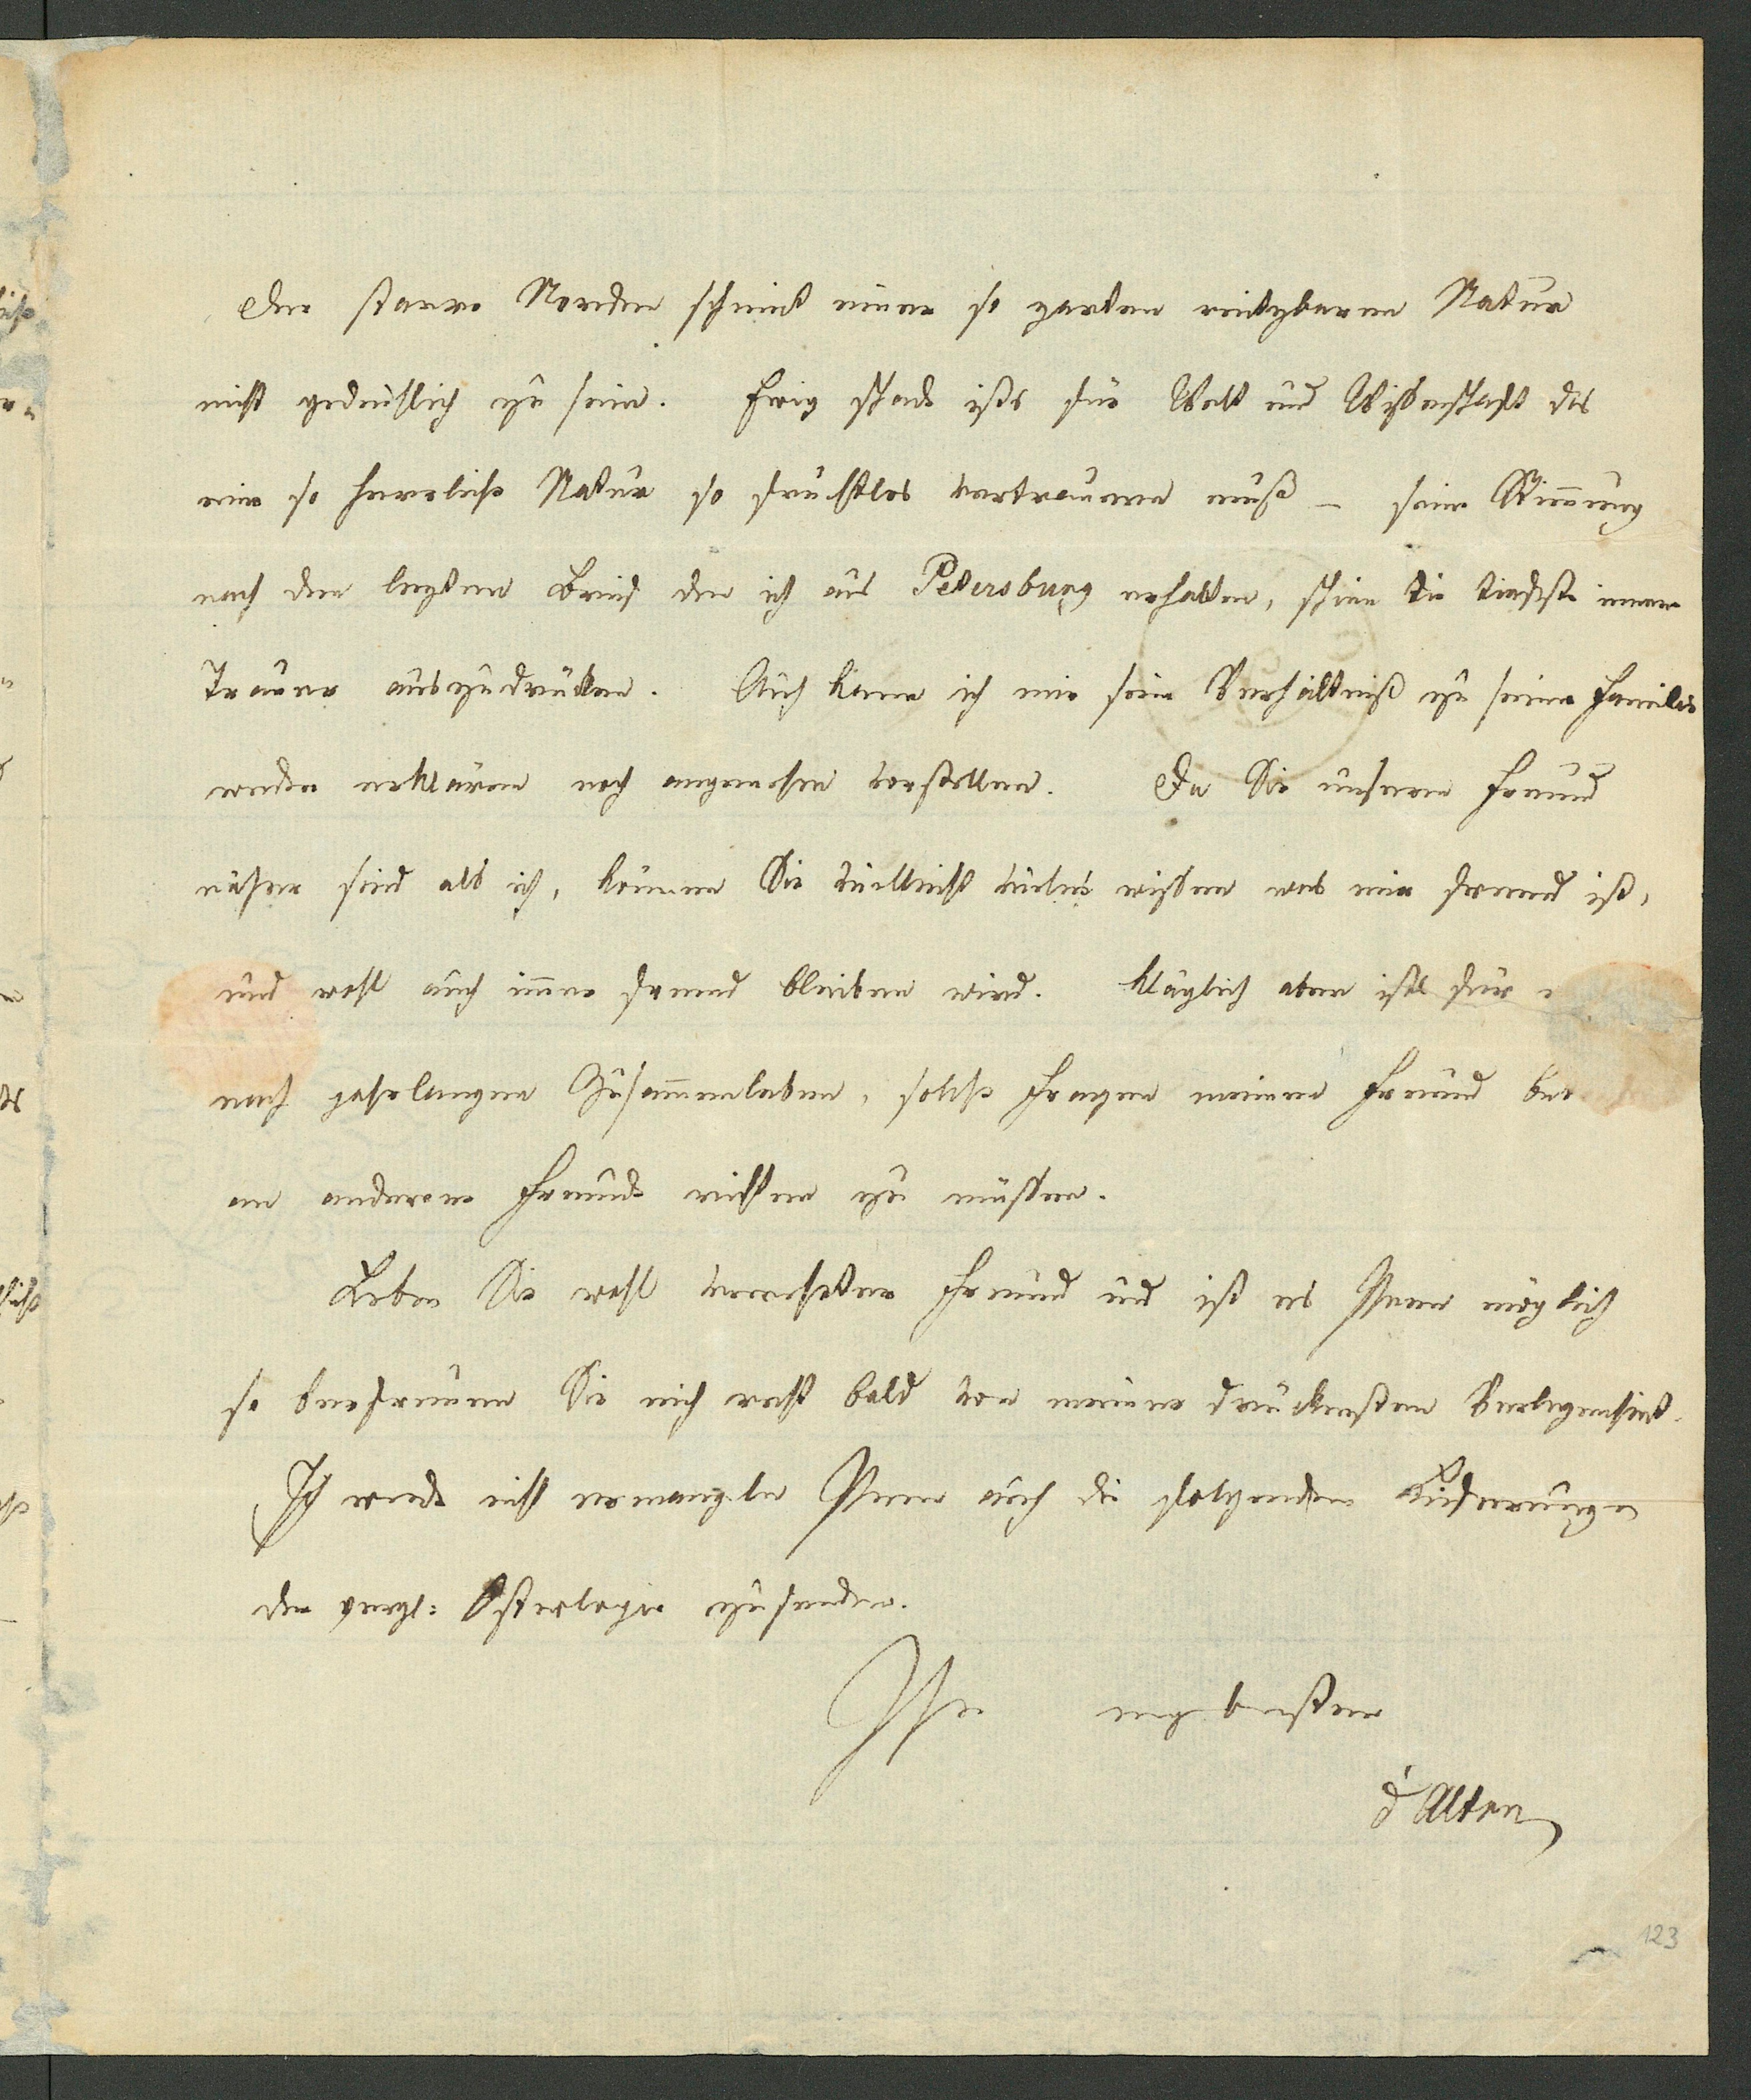 Der starre Norden scheint einer so zarten reitzbaren Natur
nicht gedeihlich zu sein. Ewig schade ists für Welt und Wissenschaft das
eine so herrliche Natur so fruchtlos vertrauern muß – seine Stimmung
nach dem lezten Brief den ich aus Petersburg erhalten, schien die tiefste innere
Trauer auszudrücken. Auch kann ich mir sein Verhältniß zu seiner Familie
weder erklären noch angenehm vorstellen. Da Sie unserm Freund
näher sind als ich, können Sie vielleicht vieles wissen was mir fremd ist,
und wohl auch immer fremd bleiben wird. Kläglich aber ists für
nach jahrlangen Zusammenleben, solche Fragen meinen Freund
an andere Freunde richten zu müssen.
Leben Sie wohl verehrter Freund und ist es Ihnen möglich
so befreien Sie mich recht bald von meiner drückensten Verlegenheit.
Ich werde nicht ermangeln Ihnen auch die folgenden Lieferungen
der vergl: Osteologie zusenden.
Ihr ergebenster
d'Alton
123